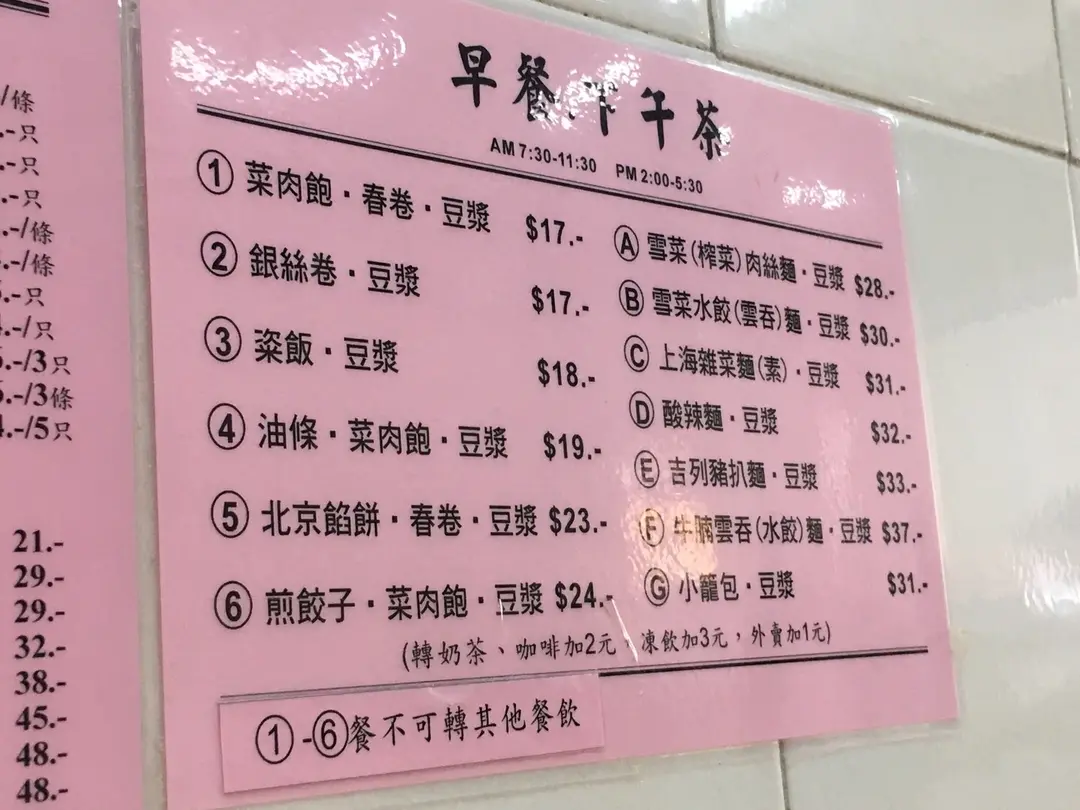 /條
.-只
.-只
.-只
.-/條
.-/條
.-只
.-/只
.-/3只
.-/3條
.-/5只
21.-
29.-
29.-
32.-
38.-
45.-
48.-
48.-
早餐 午茶
AM 7:30-11:30 PM 2:00-5:30
① 菜肉飽·春卷·豆漿 $17.-
② 銀絲卷·豆漿 $17.-
③ 粢飯·豆漿 $18.-
④ 油條·菜肉飽·豆漿 $19.-
⑤ 北京餡餅·春卷·豆漿 $23.-
⑥ 煎餃子·菜肉飽·豆漿 $24.-
Ⓐ 雪菜(榨菜)肉絲麵·豆漿 $28.-
Ⓑ 雪菜水餃(雲吞)麵·豆漿 $30.-
Ⓒ 上海雜菜麵(素)·豆漿 $31.-
Ⓓ 酸辣麵·豆漿 $32.-
Ⓔ 吉列豬扒麵·豆漿 $33.-
Ⓕ 牛腩雲吞(水餃)麵·豆漿 $37.-
Ⓖ 小籠包·豆漿 $31.-
(轉奶茶、咖啡加2元，凍飲加3元，外賣加1元)
①-⑥餐不可轉其他餐飲